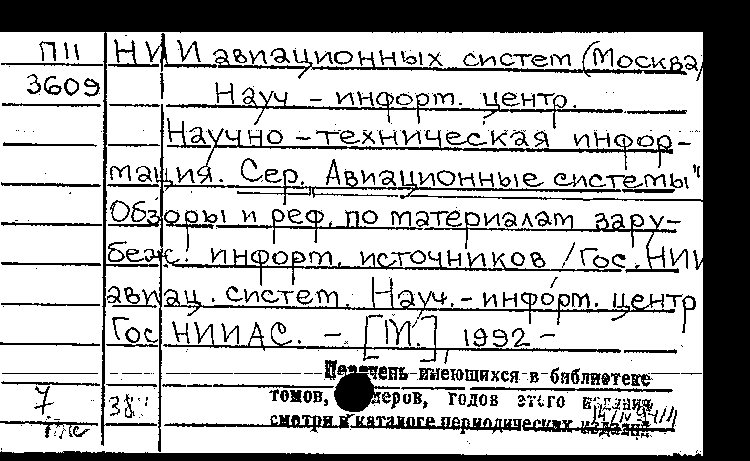 П11 НИИ авиационных систем (Москва)
3609 Науч - информ. центр.
Научно - техническая инфор-
мация. Сер. "Авиационные системы"
Обзоры и реф. по материалам зару-
беж. информ. источников / Гос. НИИ
авиац. систем. Науч. - информ. центр
Гос НИИАС. - [М.], 1992 -
Перечень имеющихся в библиотеке
7 38 томов, номеров, годов этого издания
смотри в каталоге периодических изданий